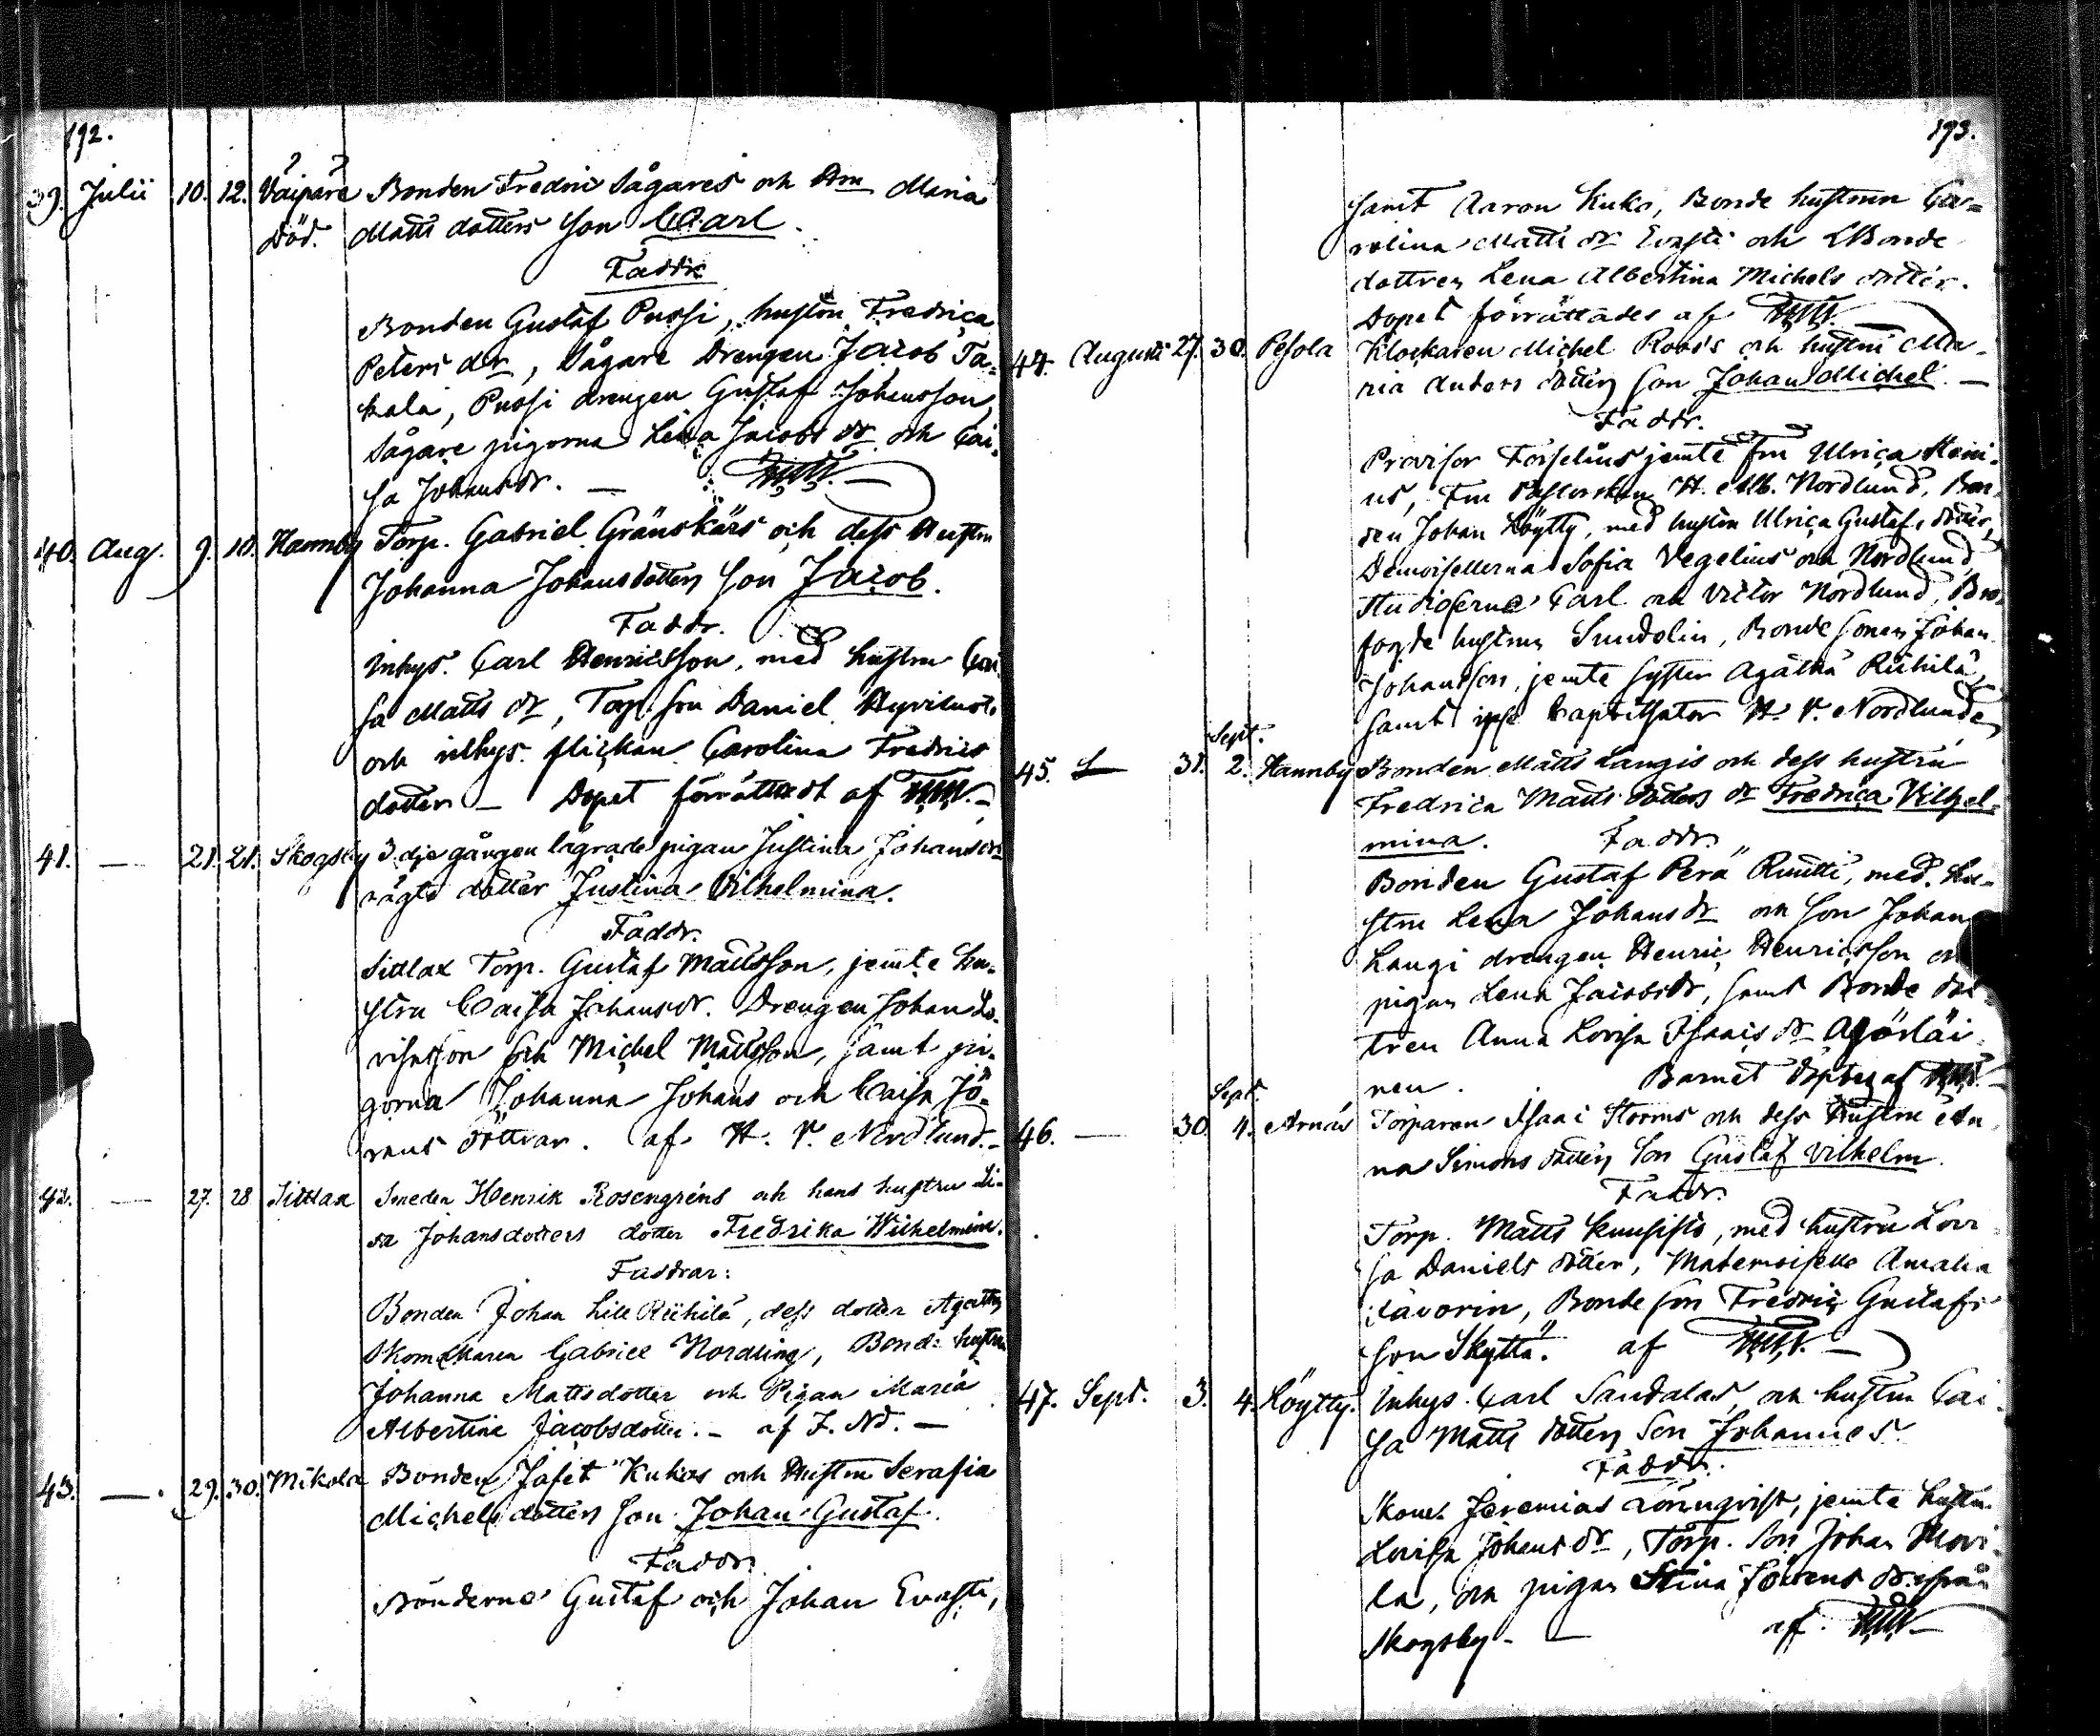 192.
39. Julii 10. 12. Väipäre Bonden Fredric Sågares och Hru Maria
Död. Matts dotters Son Carl.
Faddr.
Bonden Gustaf Pussi, hustru Fredrica
Peters dr, Sågare Drengen Jacob Ta=
kala, Pussi drengen Gustaf Johansson,
Sågare pigorna Lena Jacobs dr och Cai=
sa Johansdr. —
40. Aug. 9. 10. Hannby Torp. Gabriel Gränskärs och dess Hustru
Johanna Johansdotters Son Jacob.
Faddr.
Inhys. Carl Henricsson, med hustru Cai
sa Matts dr, Torp. Son Daniel
och inhys. flickan Carolina Fredrics
dotter — Dopet förrättadt af
41. — 21. 21. Skogsby 3dje gången lägrade pigan Justina Johansdrs
oägta dotter Justina Vilhelmina.
Faddr.
Sittlax Torp. Gustaf Mattsson, jemte hu=
stru Caisa Johansdr. Drengen Johan Da=
vidsson och Michel Mattsson, samt pi=
gorna Johanna Johans och Caisa Jö=
rans döttrar. af H. V. Nordlund. —
42. — 27. 28 Sittlax Smeden Henrik Rosengréns och hans hustru Li=
sa Johansdotters dotter Fredrika Wilhelmina.
Faddrar:
Bonden Johan Lill Riihilä, dess dotter Agatha
Skomakaren Gabriel Nordling, Bonde hustru
Johanna Mattsdotter och Pigan Maria
Albertina Jacobsdotter. — af F. Nd. —
43. — . 29. 30. Mikola Bonden Jafet Kukos och Hustru Serafia
Michels dotters Son Johan Gustaf.
Faddr.
Bönderne Gustaf och Johan Evasti,
193.
samt Aaron Kuko, Bonde hustrun Ca=
rolina Matts dr Evasti och Bonde
dottren Lena Albertina Michels dotter.
Dopet förrättades af
44. Augusti 27. 30. Pesola Klockaren Michel Roos's och hustru Ma=
ria Anders dotters Son Johan Michel. —
Faddr.
Provisor Forselius jemte Fru Ulrica
Fru Pastorskan H. Alb. Nordlund, Bon=
den Johan Löytty, med hustru Ulrica Gustafs dotter,
Demoisellerna Sofia Vegelius och Nordlund,
Studioserne Carl och Victor Nordlund, Bro=
fogde hustrun Sundelin, Bonde Sonen Johan
Johansson, jemte syster Agatha Riihilä,
samt ipse baptisator H. V. Nordlund
Sept.
45. 31. 2. Hannby Bonden Matts Langis och dess hustru
Fredrica Matts dotters dr Fredrica Vilhel=
mina. Faddr.
Bonden Gustaf Perä Ruutti, med hu=
stru Lena Johans dr och Son Johan
Langi drengen Henric Henricsson och
pigan Lena Jacobsdr, samt Bonde dot=
tren Anna Lovisa Isaacs dr
nen. Barnet döptes af
Sept.
46. — 30. 4. Arnäs Torparen Isaac Storms och dess Hustru An
na Simons dotters Son Gustaf Vilhelm.
Faddr.
Torp. Matts Kuusisto, med hustru Lovi
sa Daniels dotter, Mademoiselle Amalia
Favorin, Bonde Son Fredric Gustafs=
son Skyttä. af
47. Sept. 3. 4. Löytty. Inhys. Carl Sandalas, och hustru Cai
sa Matts dotters Son Johannes.
Faddr.
Skom. Jeremias Lönnqvist, jemte hustru
Lovisa Johans dr, Torp. Son Johan
la, och pigan Stina Görans dr ifrån
Skogsby. — af